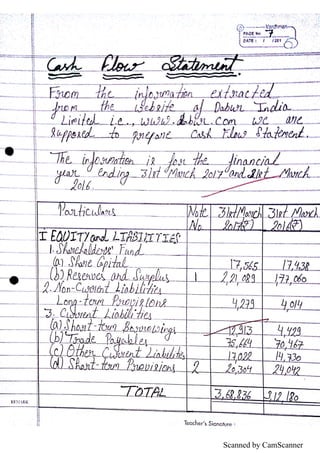 Vardhman
PAGE NO. 7
DATE : / /201
Cash Flow Statement.
From the information extracted
from the website of Dabur India
Limited i.e., www.dabur.com we are
supposed to prepare Cash Flow Statement.
The information is for the financial
year ending 31st March 2017 and 31st March
2016.
Particulars Note No. 31st March 2017(₹) 31st March 2016(₹)
I EQUITY and LIABILITIES
1. Shareholders' Fund
(a) Share Capital 17,565 17,438
(b) Reserves and Surplus 2,21,089 1,77,060
2. Non-Current Liabilities
Long-term Provisions 4,279 4,014
3. Current Liabilities
(a) Short-term Borrowings 12,913 4,429
(b) Trade Payables 75,664 70,467
(c) Other Current Liabilities 17,022 14,730
(d) Short-term Provisions 2 20,304 24,042
TOTAL 3,68,836 3,12,180
Teacher's Signature :
Scanned by CamScanner